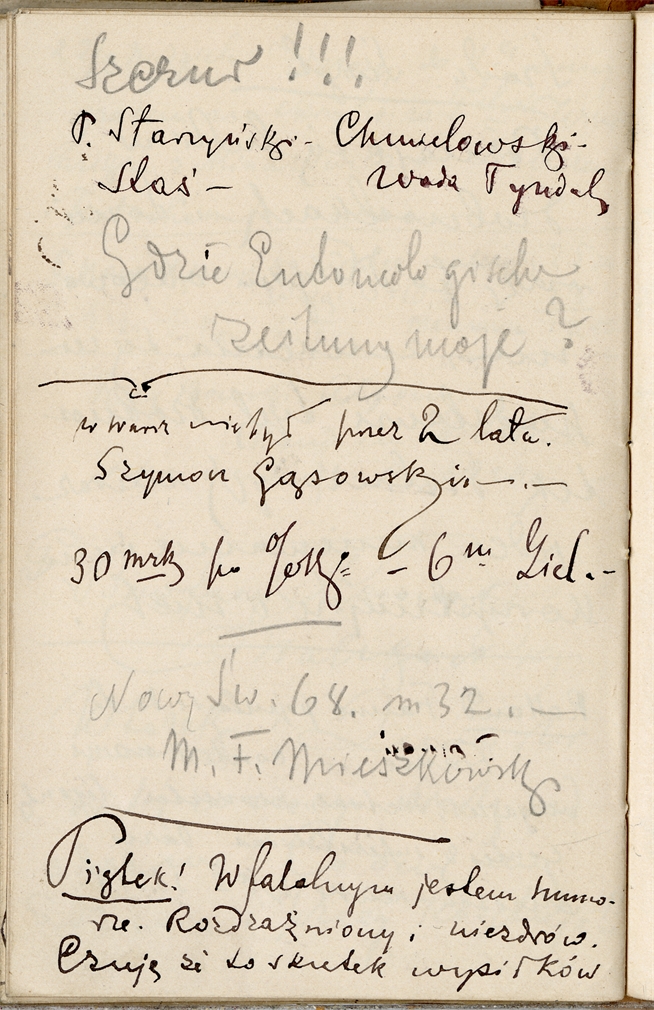 !!!
P. Starzyński - Chmielowski -
Staś - Woda Tyndal
Gdzie Entomologische
Zeitung moje?
przez 2 lata.
Szymon Gąsowski
30 mrk po - 6 Ziel. -
Nowy Św. 68. m 32. —
M. F. Mieszkowski
Piątek! W fatalnym jestem humo-
rze. Rozdrażniony i niezdrów.
Czuję że to skutek wysiłków